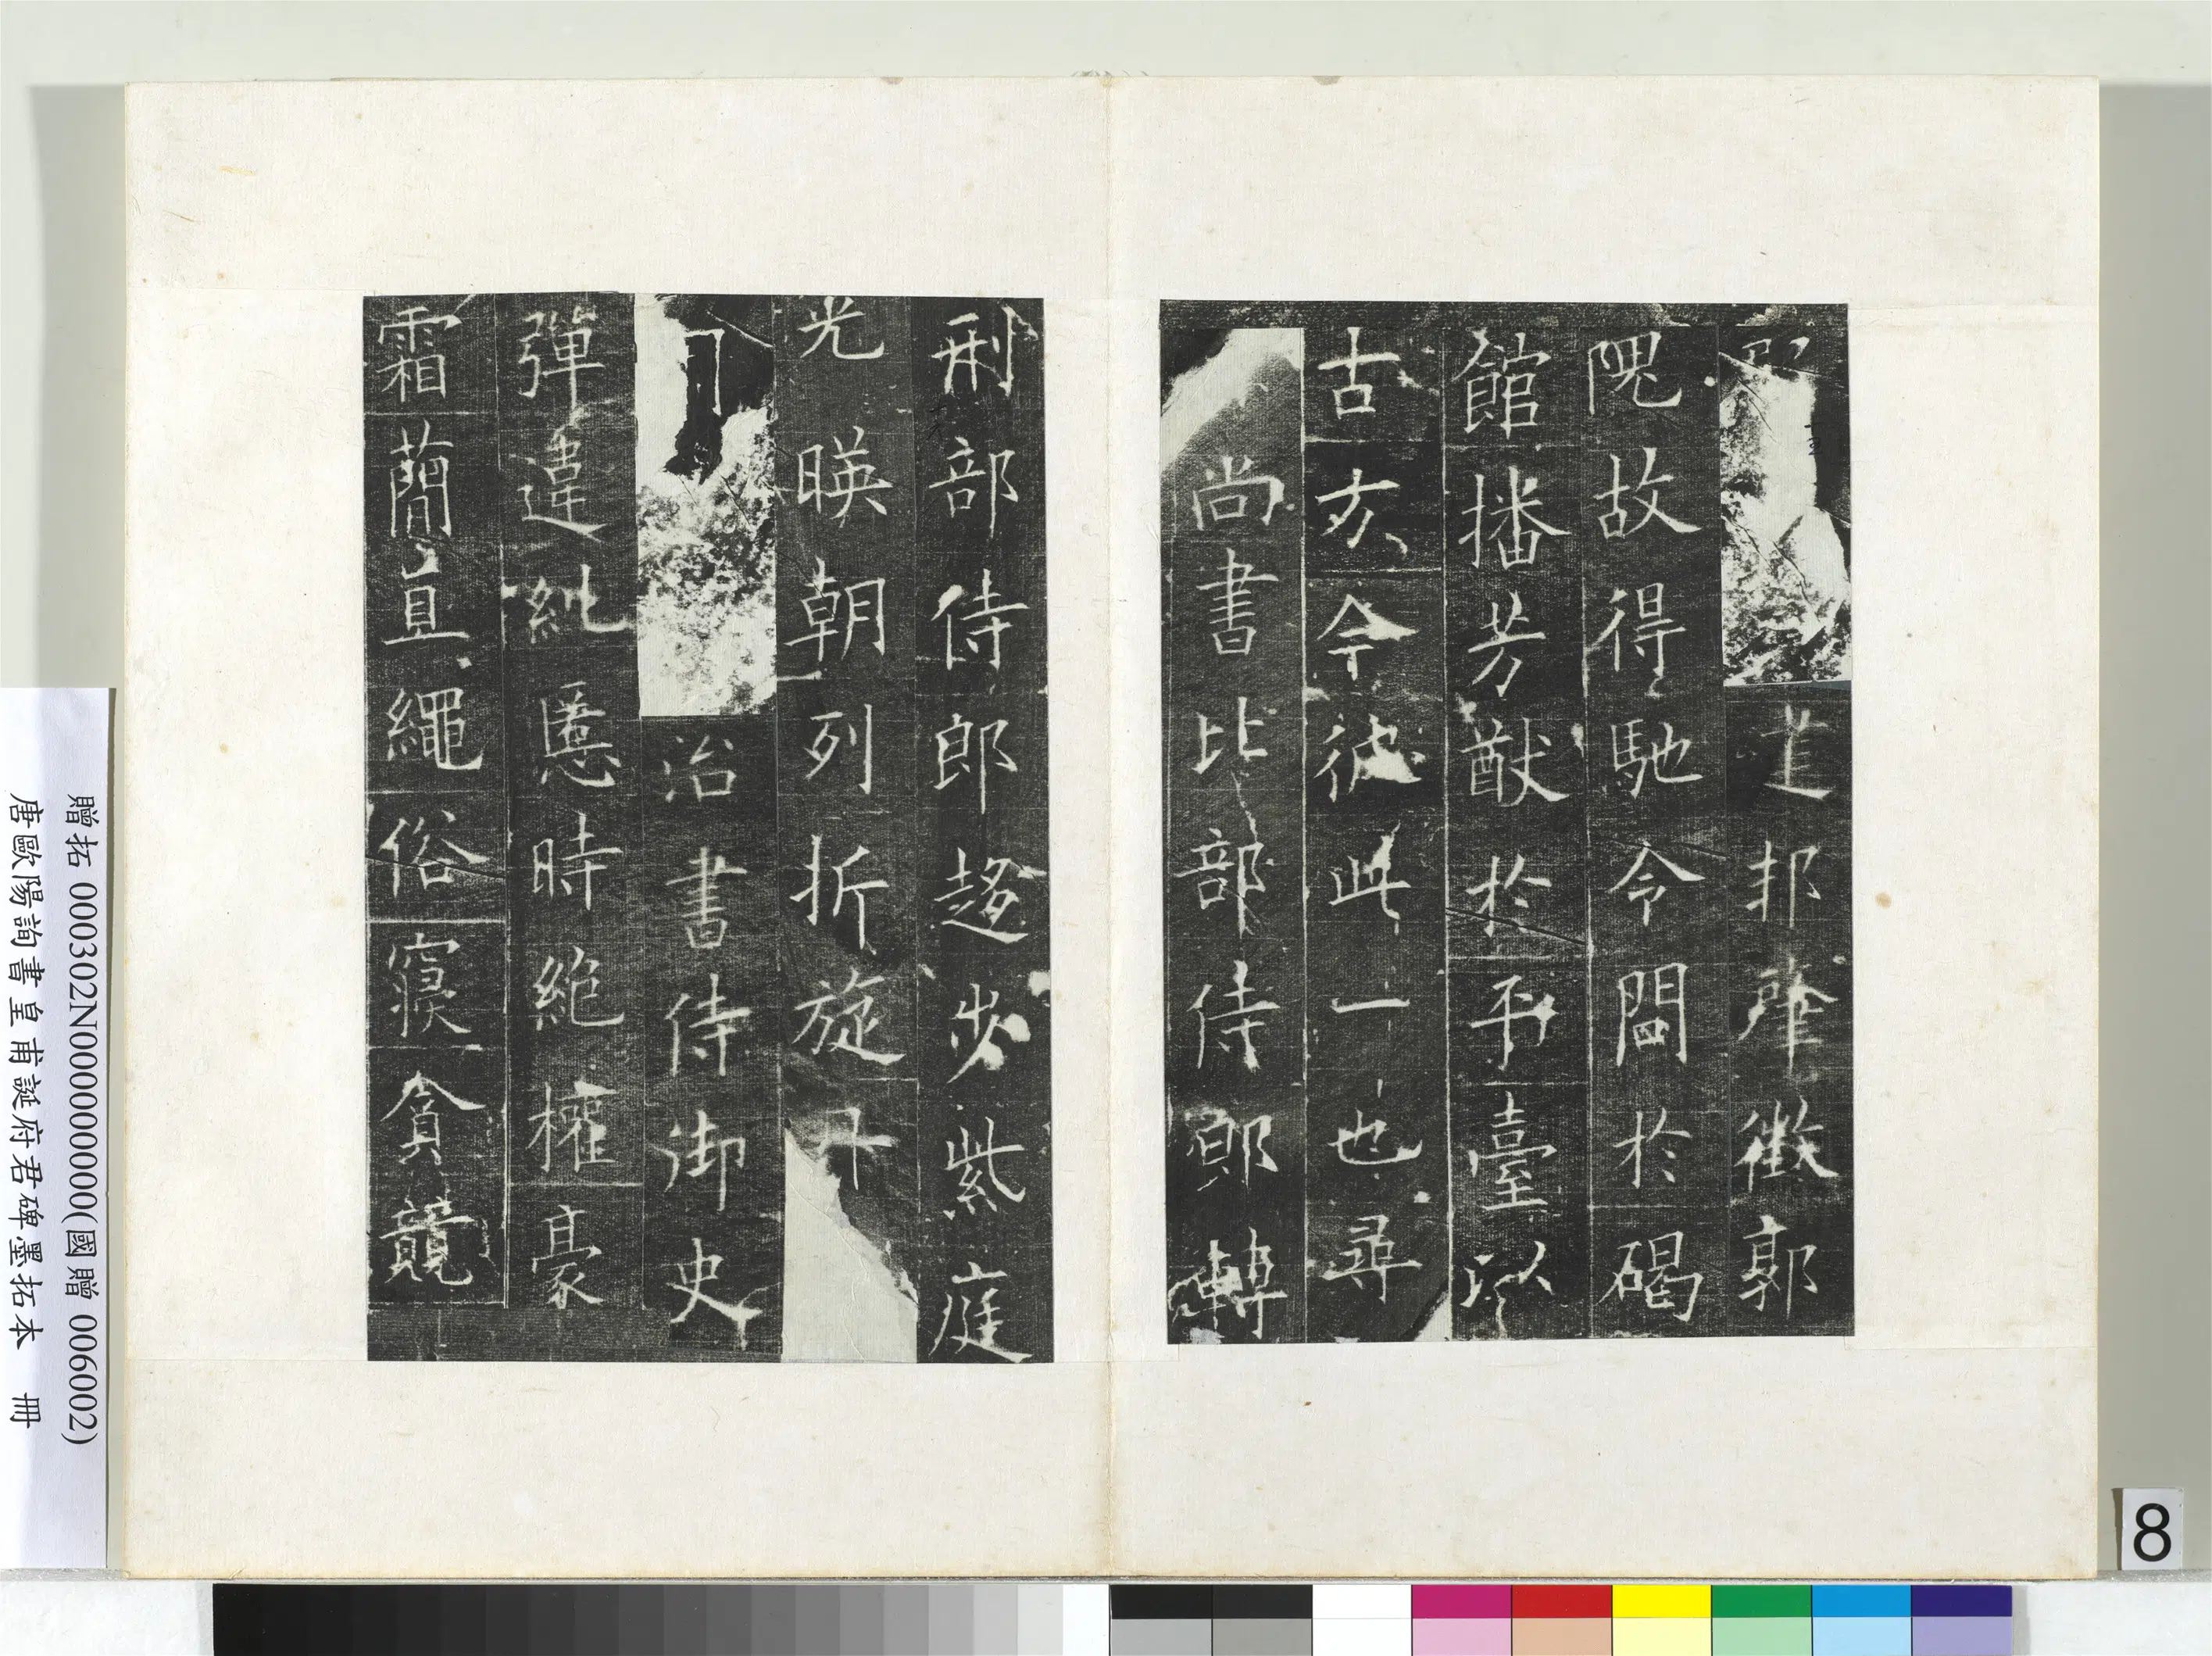 莛邦肇徵郭
隗故得馳令問於碣
館播芳猷於平臺以
古方今彼此一也尋
尚書比部侍郎轉
刑部侍郎趍步紫庭
光暎朝列折旋丹
司
治書侍御史
彈違糺慝時絕權豪
霜簡直繩俗寢貪競
贈拓 000302N000000000(國贈 006002)
唐歐陽詢書皇甫誕府君碑墨拓本 冊
8